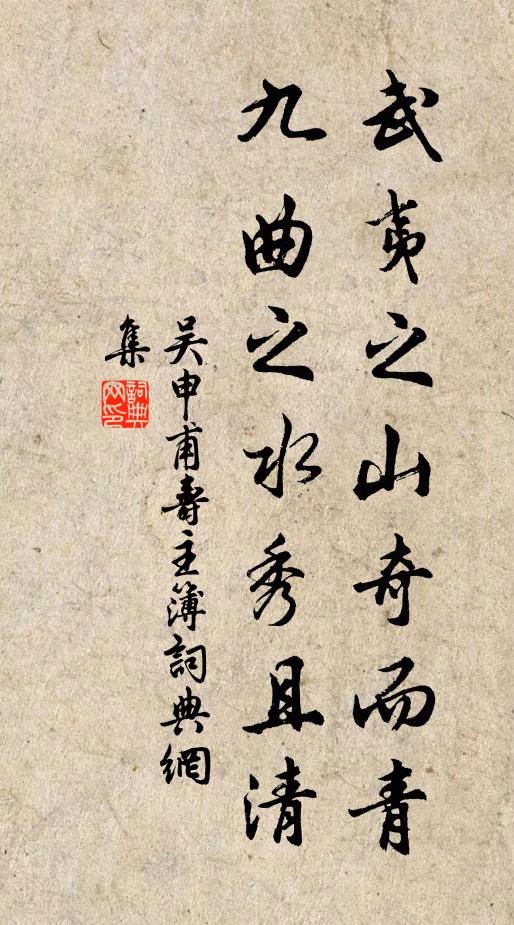 武夷之山奇而青
九曲之水秀且清
吴申甫壽主簿詞典網
集
詞典
網印